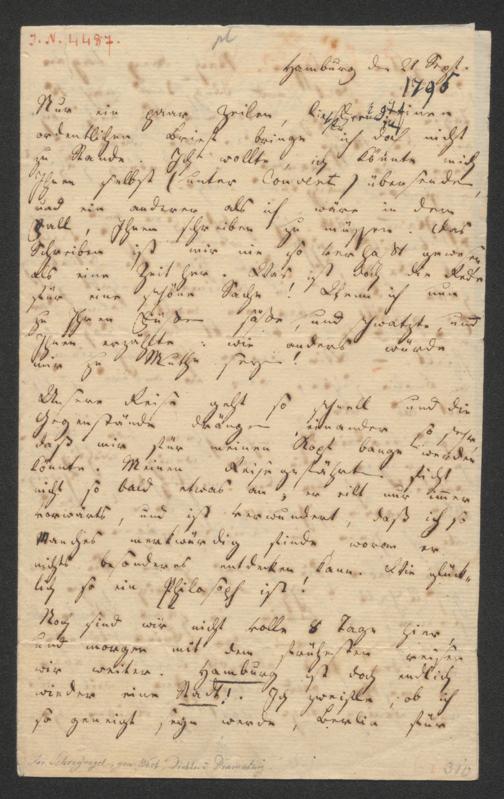 J. N. 4487.
Hamburg den 21 Sept.
1795
Nur ein paar Zeilen, einen
ordentlichen Brief bringe ich doch nicht
zu Stande. Ich wollte, ich könnte mich
Ihnen selbst (unter Couvert) übersenden,
und ein anderer als ich wäre in dem
Fall, Ihnen schreiben zu müssen. Das
Schreiben ist mir nie so verhaßt gewesen
als eine Zeit her. Was ist doch die Rede
für eine schöne Sache! Wenn ich nun
zu Ihren Füßen säße, und schwatzte und
Ihnen erzählte: wie anders würde
mir zu Muthe seyn!
Unsere Reise geht so schnell und die
Gegenstände drängen einander so sehr
daß mir für meinen Kopf bange werden
könnte. Meinen Reisegefährten ficht
nicht so bald etwas an, er eilt nur immer
vorwärts, und ist verwundert, daß ich so
Manches merkwürdig finde woran er
nichts besonderes entdecken kann. Wie glück-
lich so ein Philosoph ist!
Noch sind wir nicht volle 8 Tage hier,
und morgen mit dem frühesten reisen
wir weiter. Hamburg ist doch endlich
wieder eine Stadt! Ich zweifle, ob ich
so geneigt seyn werde, Berlin für
Jos. Schreyvogel, gen. West, Dichter u. Dramaturg